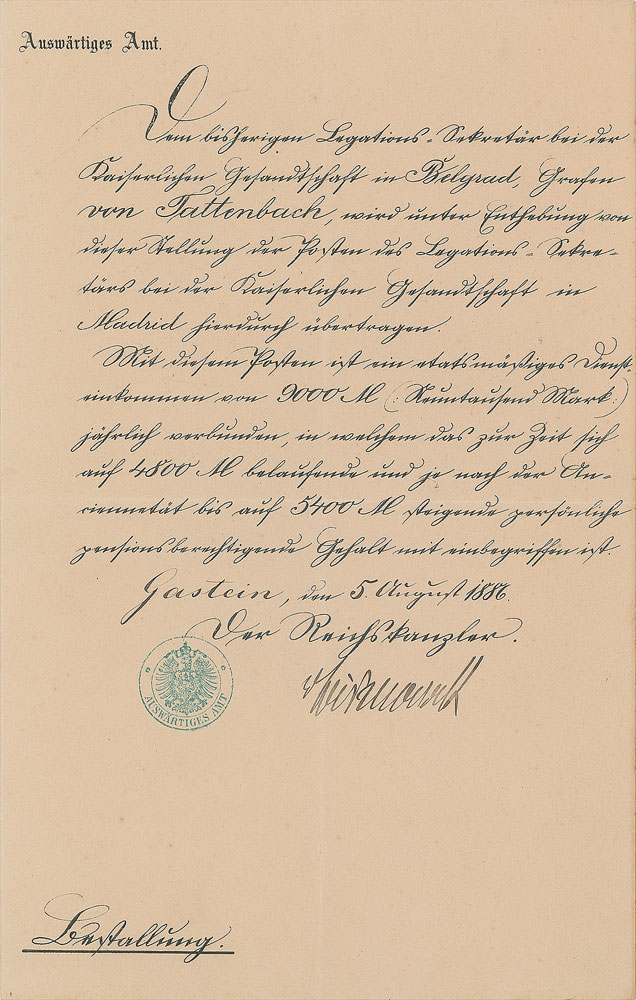 Auswärtiges Amt.
Dem bisherigen Legations-Sekretär bei der
Kaiserlichen Gesandtschaft in Belgrad, Grafen
von Tattenbach, wird unter Enthebung von
dieser Stellung der Posten des Legations-Sekre-
tärs bei der Kaiserlichen Gesandtschaft in
Madrid hierdurch übertragen.
Mit diesem Posten ist ein etatsmäßiges Dienst-
einkommen von 9000 M (: Neuntausend Mark :)
jährlich verbunden, in welchem das zur Zeit sich
auf 4800 M belaufende und je nach der An-
ciennetät bis auf 5400 M steigende persönliche
pensionsberechtigende Gehalt mit einbegriffen ist.
Gastein, den 5. August 1886.
Der Reichskanzler.
vBismarck
AUSWÄRTIGES AMT
Bestallung.